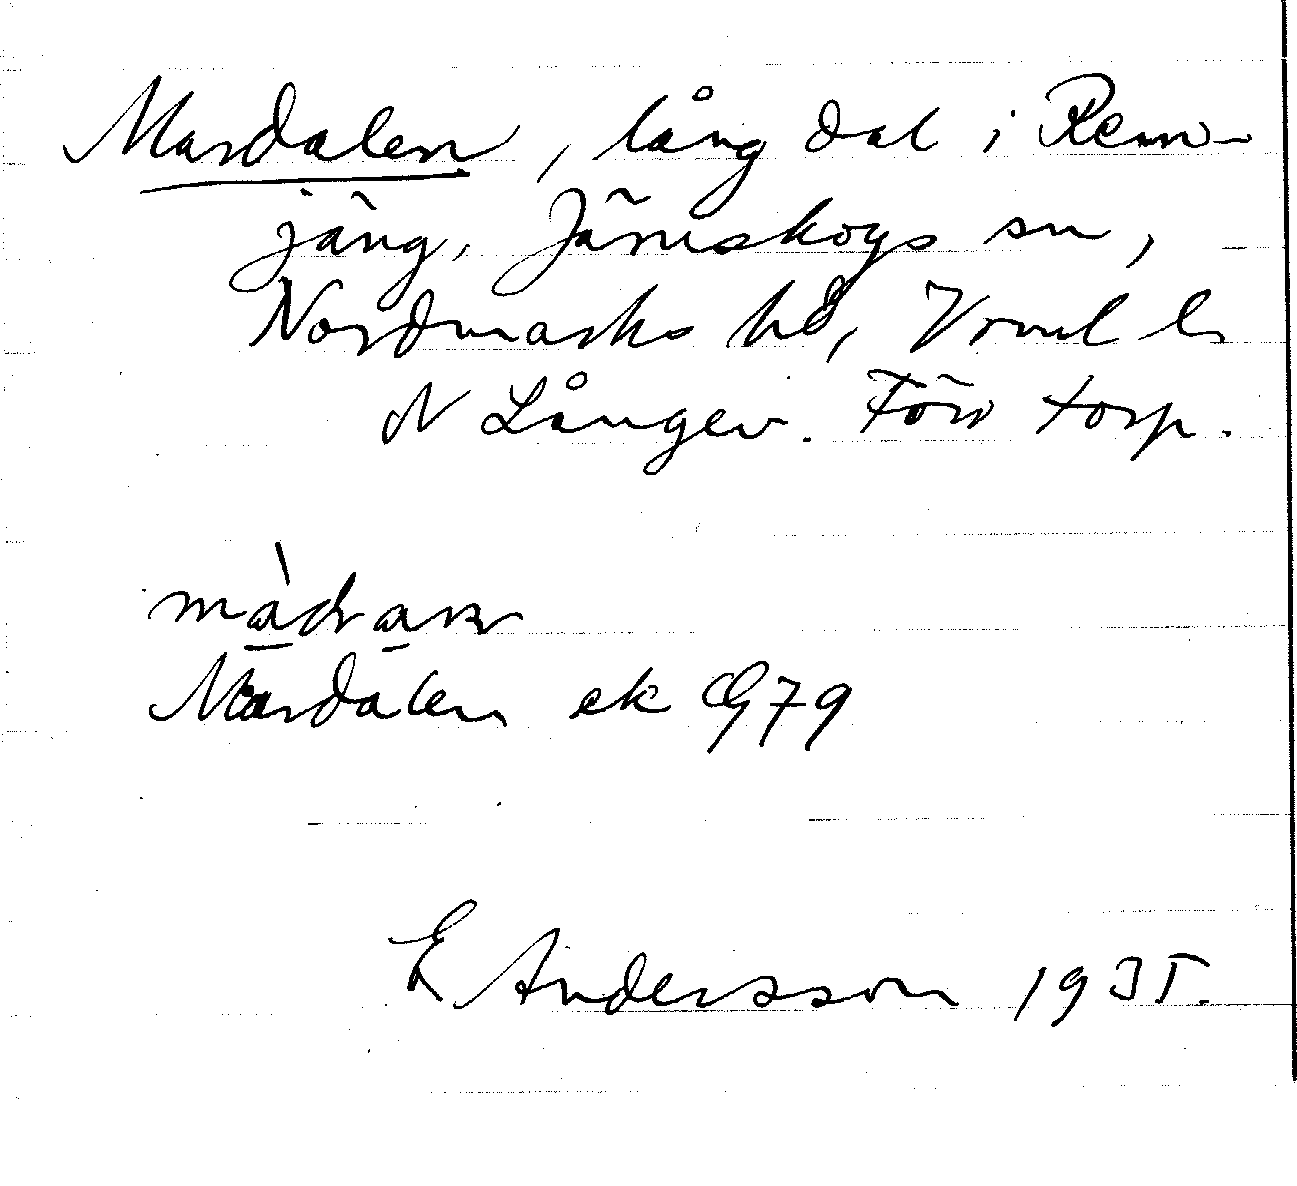 Mardalen, lång dal i Rem-
jäng, Järnskogs sn,
Nordmarks hd, Vrml ln
N Långev. Förr torp.
màdran
Mardalen ek G79
E Andersson 1935.